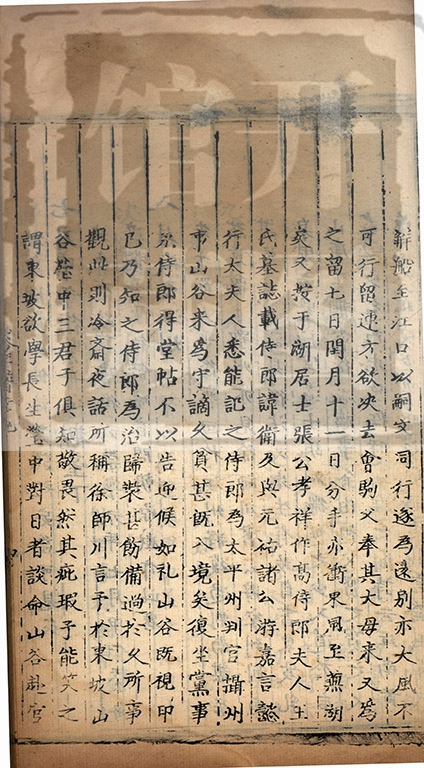 觧船至江口以嗣文同行遂為遠别亦大風不
可行留連方欲决去會駒父奉其大母来又為
之留七日閏月十一日分手亦衝東風至蕪湖
矣又按于湖居士張公孝祥作髙侍郎夫人王
氏墓誌載侍郎諱衛及與元祐諸公游嘉言懿
行太夫人悉能記之侍郎為太平州判官攝州
事山谷来為守謫久貧甚既入境矣復坐黨事
侍郎得堂帖不以告迎候如礼山谷既視印
已乃知之侍郎為治歸装甚飭備過於久所事
觀此則冷斎夜話所稱徐師川言予於東坡山
谷瑩中三君子俱知敬畏然其疵瑕予能笑之
謂東坡欲學長生瑩中對日者談命山谷赴官